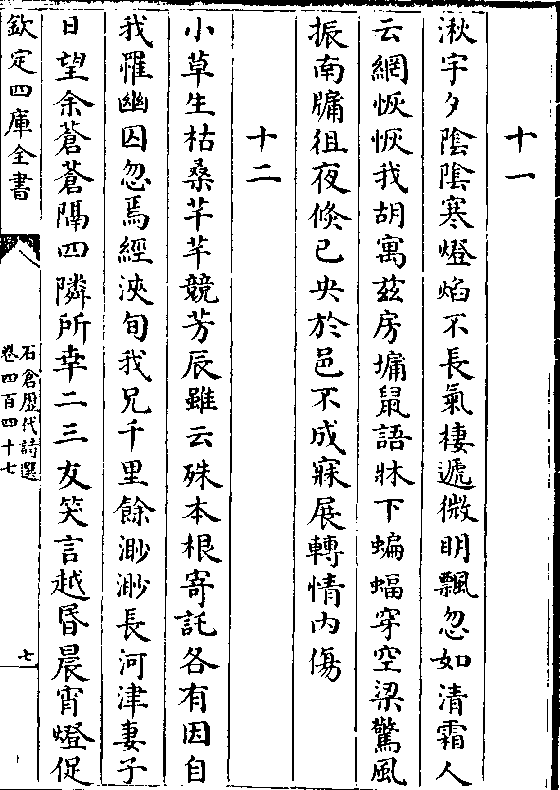 十一
湫宇夕陰陰寒燈焰不長氣棲遞微明飄忽如清霜人
云網恢恢我胡寓茲房墉鼠語牀下蝙蝠穿空梁驚風
振南牖徂夜倏已央於邑不成寐展轉情内傷
十二
小草生枯桑芊芊競芳辰雖云殊本根寄託各有因自
我罹幽囚忽焉經浹旬我兄千里餘渺渺長河津妻子
日望余蒼蒼隔四隣所幸二三友笑言越昏晨宵燈促
欽定四庫全書
石倉歷代詩選
卷四百四十七
七